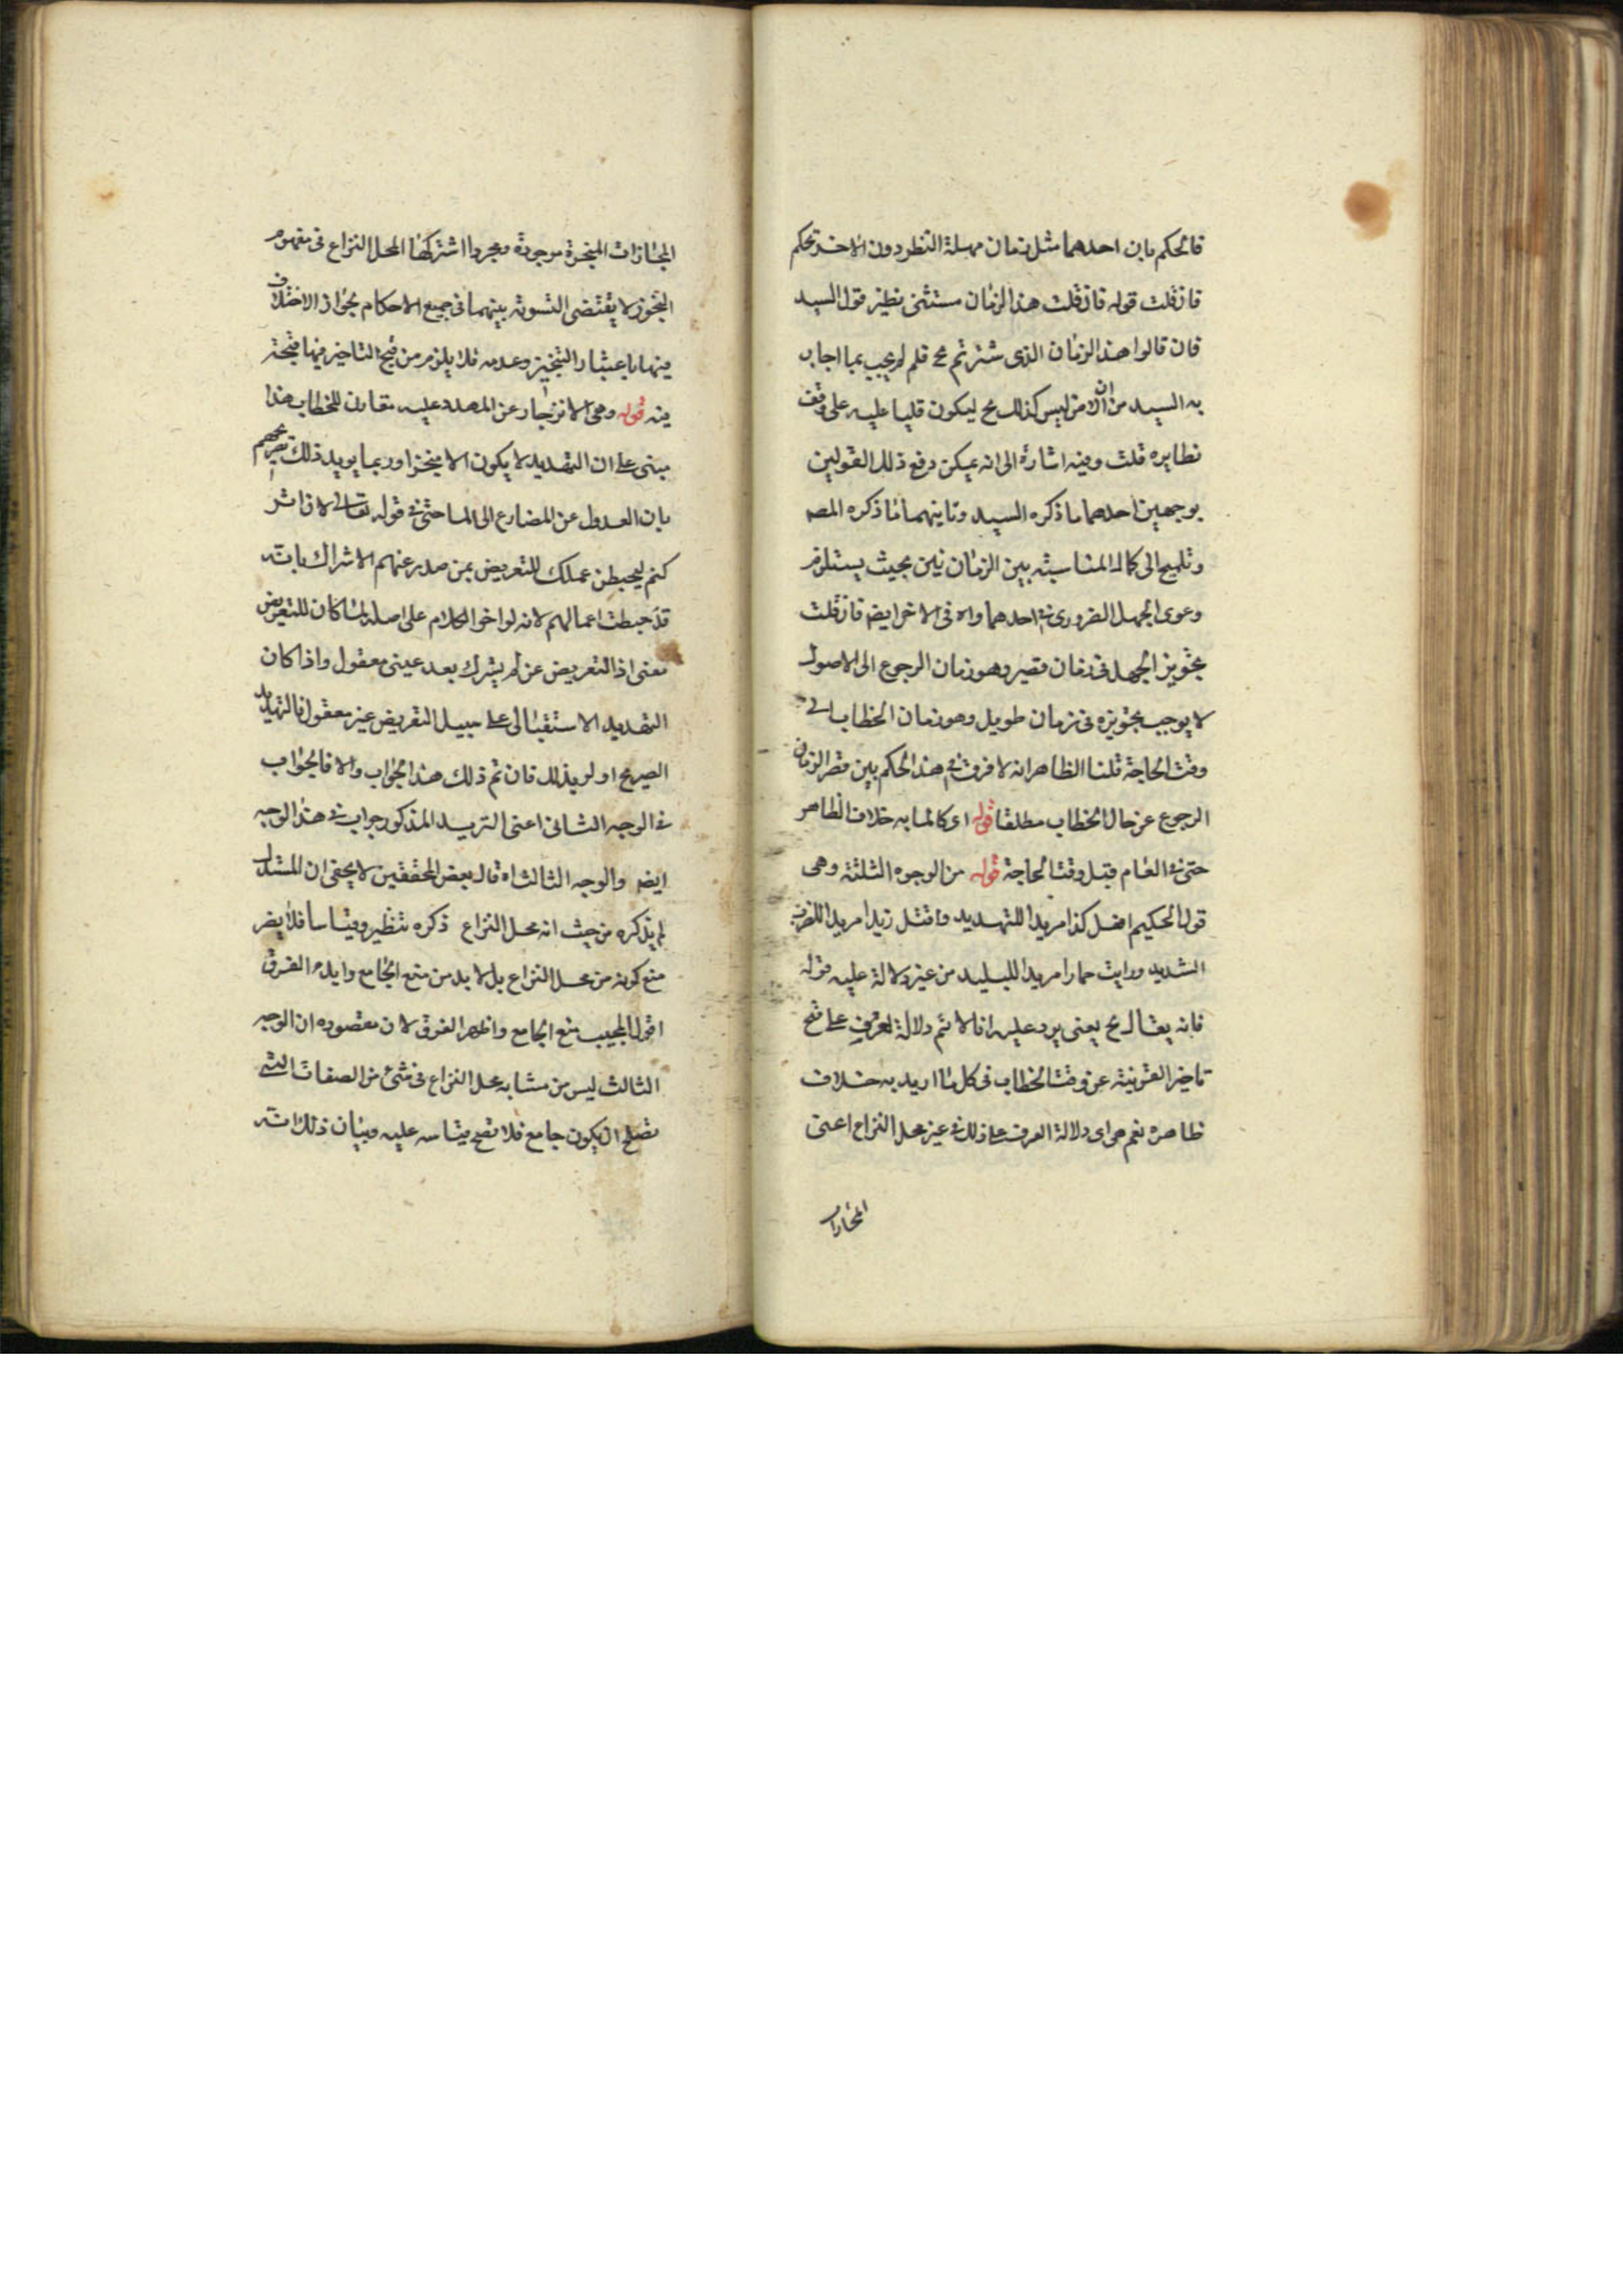 فالحكم بان احدهما مثل زمان مهلة النظر دون الاخر تحكم
فان قلت قوله فان قلت هذا الزمان مستثنى نظير قول السيد
فان قالوا هذا الزمان الذى اشترتم مح قلم لم يجيب بما اجاب
به السيد من ان الامر ليس كذلك مح ليكون قلبا عليه على وفق
نظايره قلت وفيه اشارة الى انه يمكن دفع ذلك القولين
بوجهين احدهما ما ذكره السيد وثانيهما ما ذكره المصـ
وتلميح الى كمال المناسبة بين الزمانين بحيث يستلزم
دعوى الجهل الضرورى فى احدهما والا فى الاخر ايضـ فان قلت
تجويز الجهل فى زمان قصير وهو زمان الرجوع الى الاصول
لا يوجب تجويزه فى زمان طويل وهو زمان الخطاب الى
وقت الحاجة قلنا الظاهر انه لا فرق فى هذا الحكم بين قصر الزمان
الرجوع عن حال الخطاب مطلقا قوله اى كالما به خلاف الظاهر
حتى فى العام قبل وقت الحاجة قوله من الوجوه الثلثة وهى
قول الحكيم افعل كذا مريدا للتهديد واقتل زيدا مريدا للضرب
الشديد ورايت حمارا مريدا للبليد من غير دلالة عليه قوله
فانه يقال مح يعنى يرد عليه انا لا نتم دلالة العرف على قبح
تاخير القرينة عن وقت الخطاب فى كل ما اريد به خلاف
ظاهره نعم هى اى دلالة العرف على ذلك فى غير محل النزاع اعنى
المجازات
المجازات المنجزة موجودة ومجرد اشتراكها لمحل النزاع فى مفهوم
التجوز لا يقتضى التسوية بينهما فى جميع الاحكام لجواز الاختلاف
فيها باعتبار التنجيز وعدمه فلا يلزم من قبح التاخير فيها قبحه
فيه قوله وهى الانزجار عن المهدد عليه مقارن للخطاب هذا
مبنى على ان التهديد لا يكون الا منجزا وربما يويد ذلك تصريحهم
بان العدول عن المضارع الى الماضى فى قوله تعالى لان اشر
كتم ليحبطن عملك للتعريض بمن صدر عنهم الاشراك بانه
قد حبطت اعمالهم لانه لو اخو الكلام على اصله لما كان للتعريض
معنى اذ التعريض عن لم يشرك بعد عينى معقول واذا كان
التهديد الاستقبالى على سبيل التعريض غير معقول فالتهديد
الصريح اولى بذلك فان تم ذلك هذا الجواب والا فالجواب
فى الوجه الثانى اعنى الترديد المذكور جواب فى هذا الوجه
ايضـ والوجه الثالث اه قال بعض المحققين لا يخفى ان المستدل
لم يذكره من حيث انه محل النزاع ذكره تنظير وقياسا فلا يضر
منع كونه من محل النزاع بل لا بد من منع الجامع وابداء الفرق
اقول المجيب منع الجامع واظهر الفرق لان مقصوده ان الوجه
الثالث ليس من مشابه محل النزاع فى شئ من الصفات التى
تصلح ان يكون جامع فلا تصح قياسه عليه وبيان ذلك انه